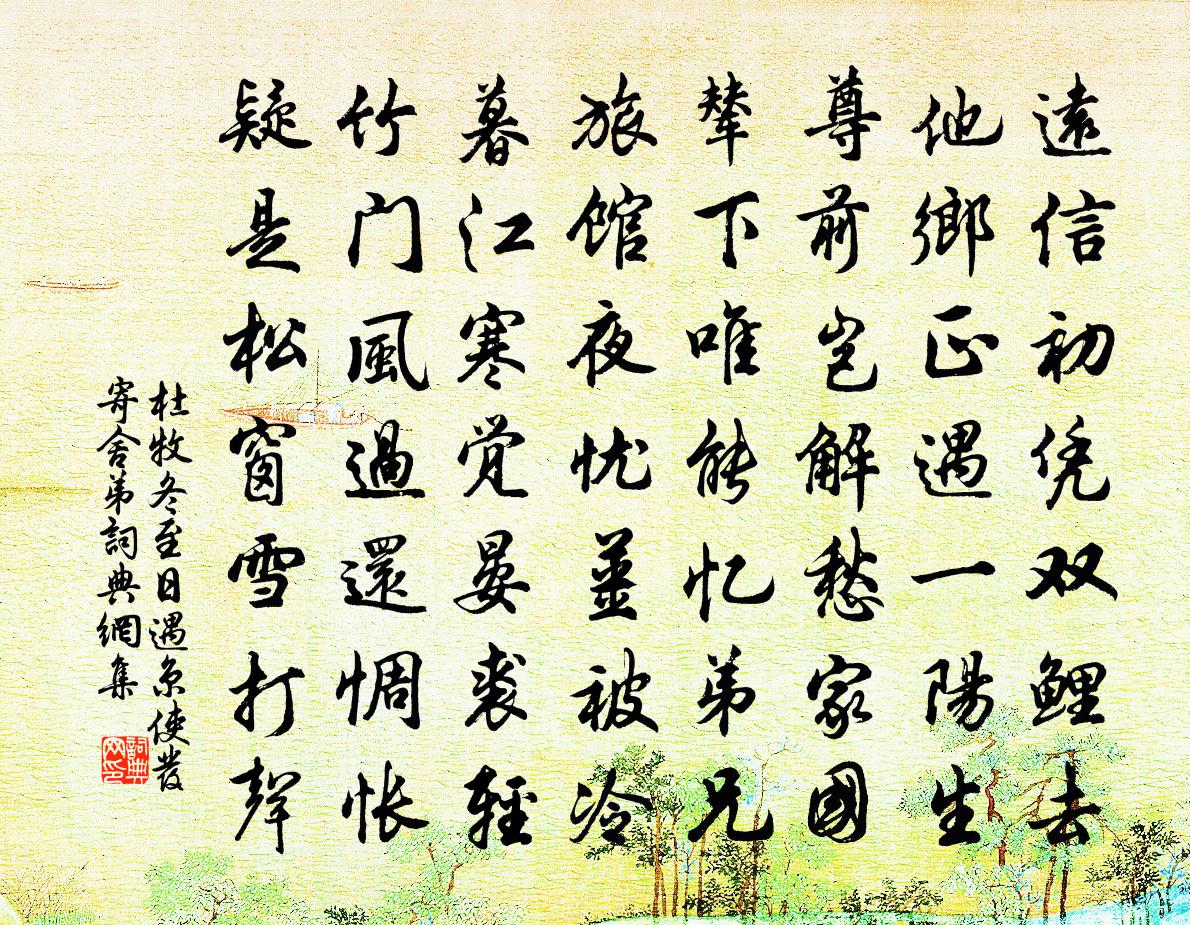 遠信初凭双鲤去
他鄉正遇一陽生
尊前岂解愁家國
輦下唯能忆弟兄
旅馆夜忧薑被冷
暮江寒觉晏裘輕
竹门風過還惆怅
疑是松窗雪打聲
杜牧冬至日遇京使發
寄舍弟詞典網集
詞典
网印